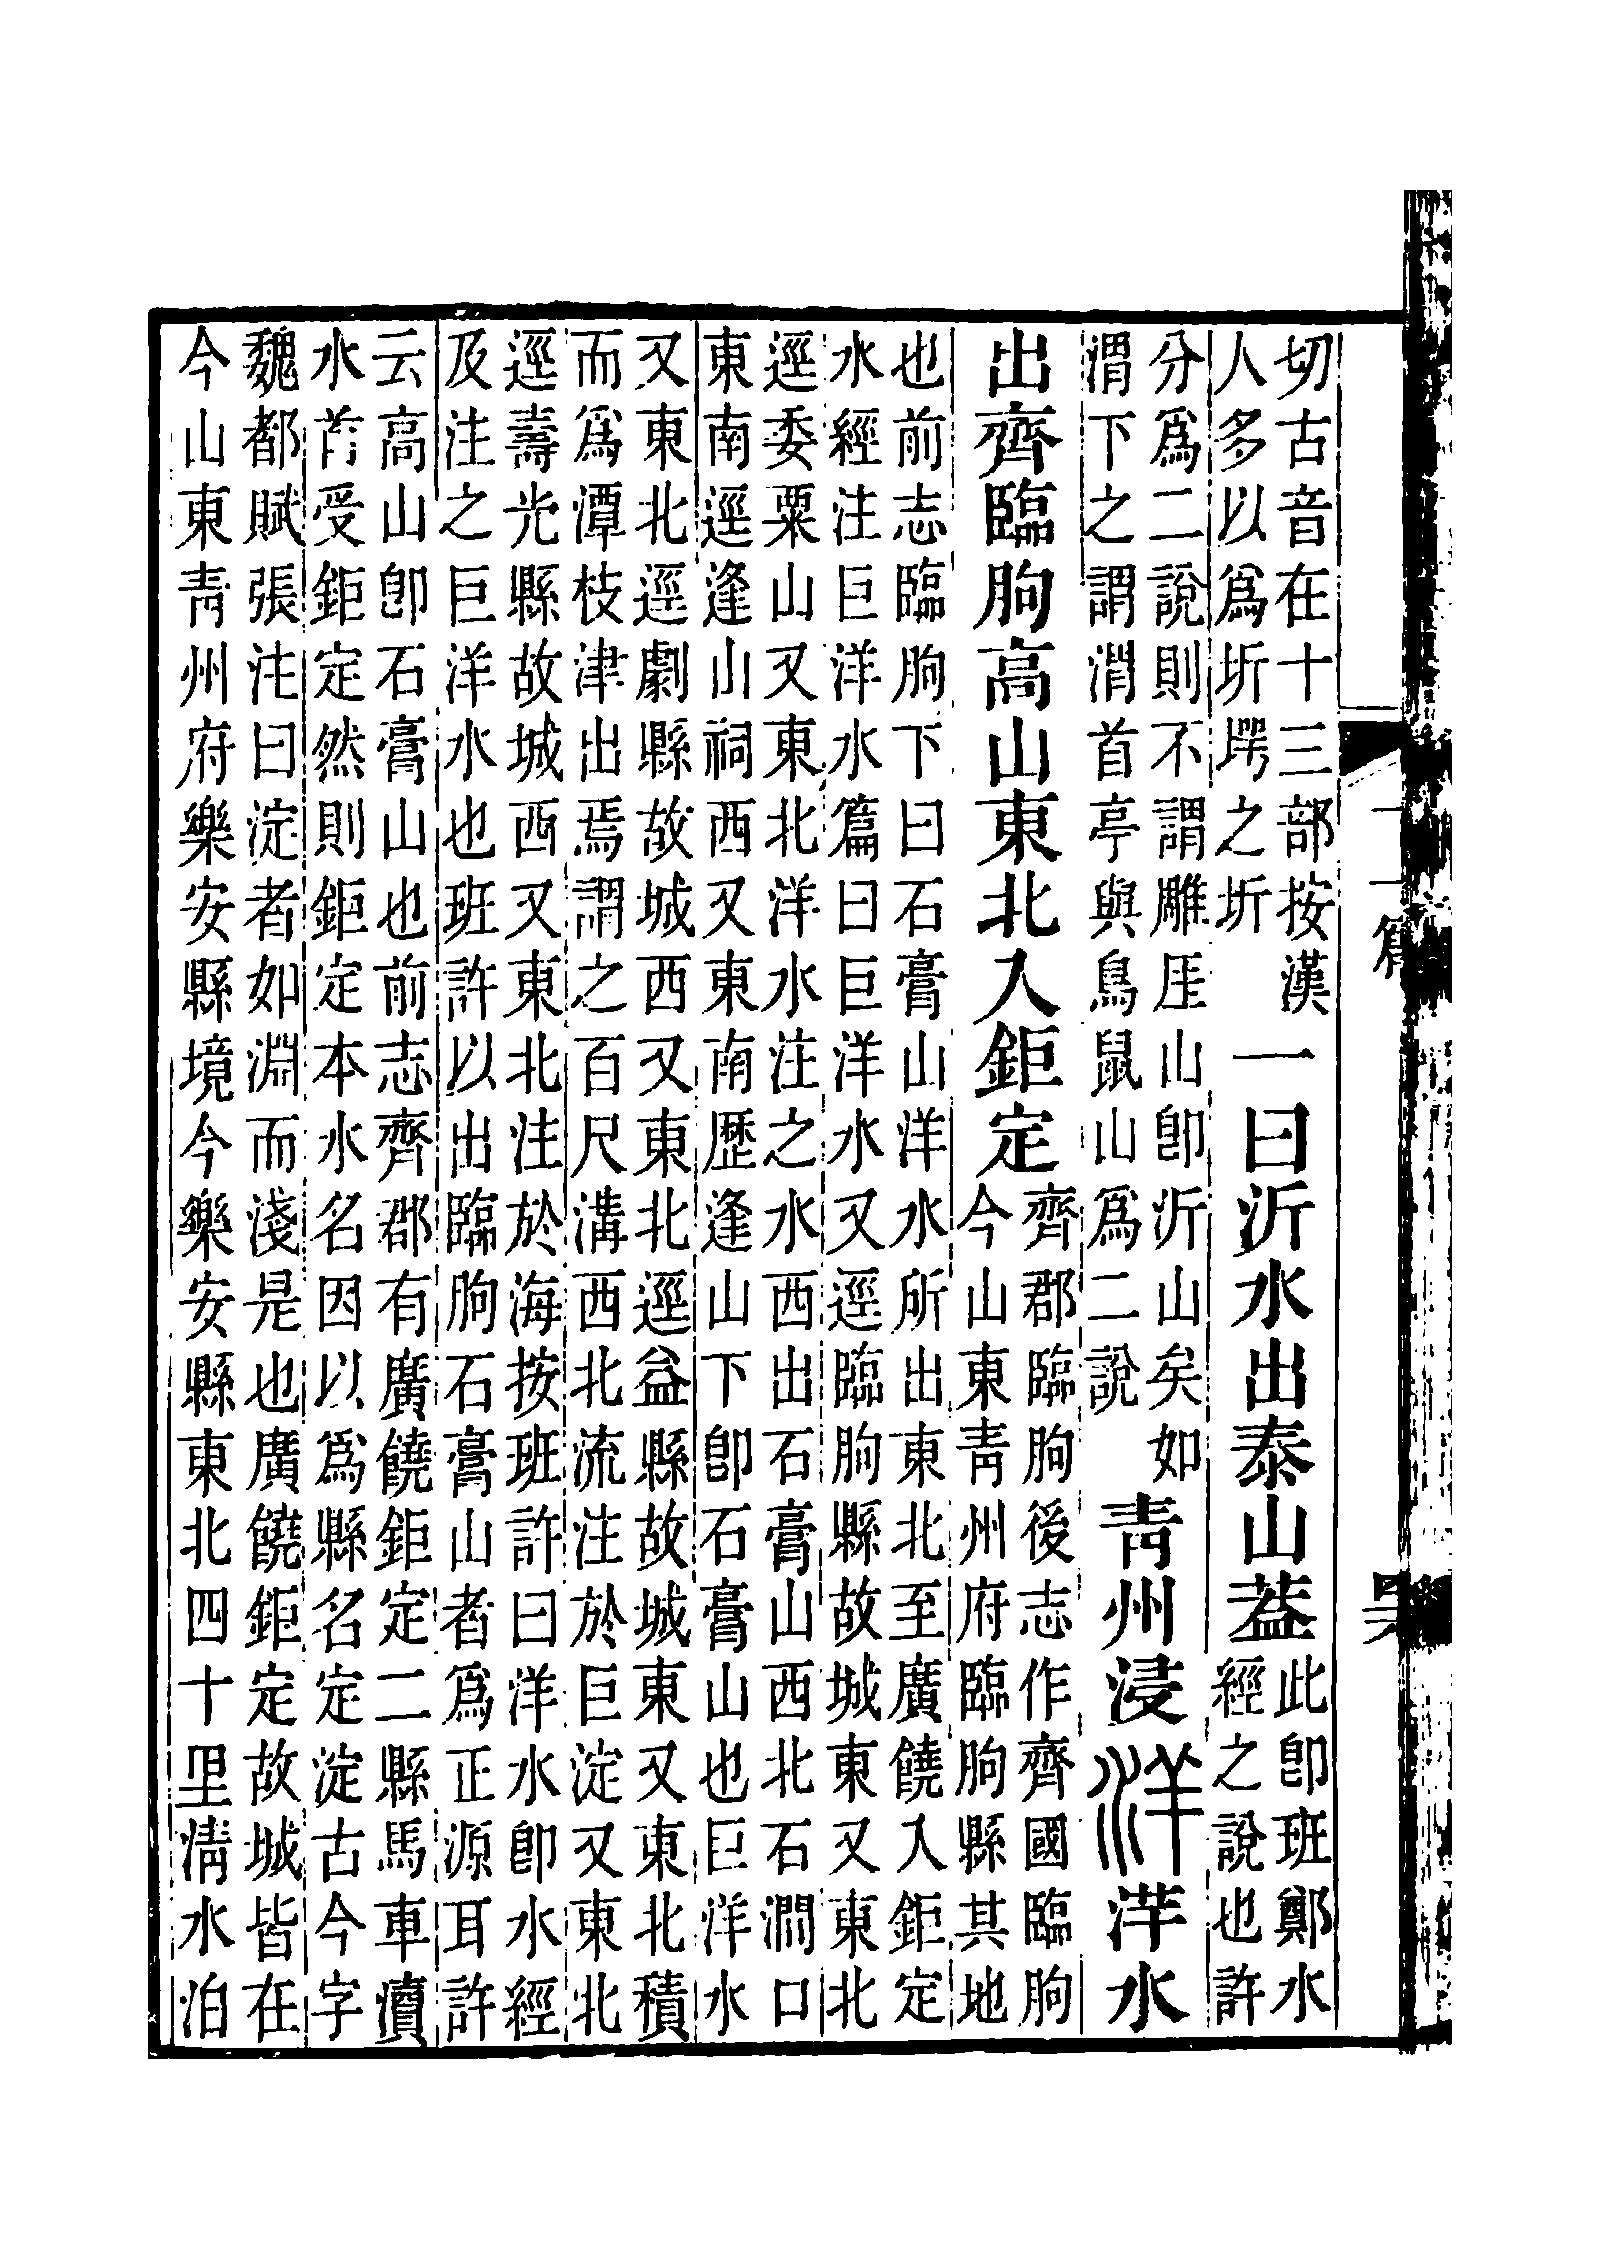 切古音在十三部按漢
人多以爲圻堮之圻
一曰沂水出泰山葢
此卽班鄭水
經之說也許
分爲二說則不謂雕厓山卽沂山矣如
渭下之謂渭首亭與鳥鼠山爲二說
青州浸
洋洋水
出齊臨朐高山東北入鉅定
齊郡臨朐後志作齊國臨朐
今山東青州府臨朐縣其地
也前志臨朐下曰石膏山洋水所出東北至廣饒入鉅定
水經注巨洋水篇曰巨洋水又逕臨朐縣故城東又東北
逕委粟山又東北洋水注之水西出石膏山西北石澗口
東南逕逢山祠西又東南歷逢山下卽石膏山也巨洋水
又東北逕劇縣故城西又東北逕益縣故城東又東北積
而爲潭枝津出焉謂之百尺溝西北流注於巨淀又東北
逕壽光縣故城西又東北注於海按班許曰洋水卽水經
及注之巨洋水也班許以出臨朐石膏山者爲正源耳許
云高山卽石膏山也前志齊郡有廣饒鉅定二縣馬車瀆
水首受鉅定然則鉅定本水名因以爲縣名定淀古今字
魏都賦張注曰淀者如淵而淺是也廣饒鉅定故城皆在
今山東青州府樂安縣境今樂安縣東北四十里清水泊